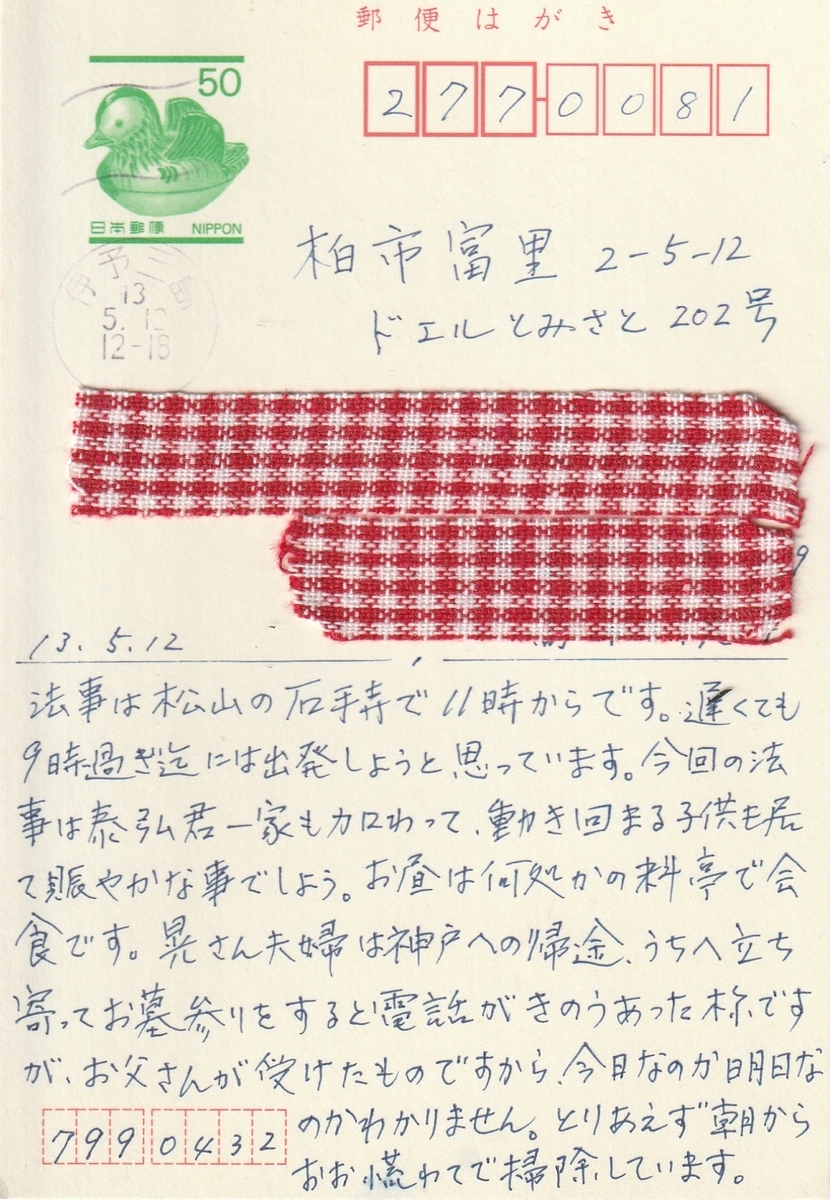 郵便はがき
50
日本郵便 NIPPON
277-0081
伊予三島
13
5.12
12-18
柏市富里 2-5-12
ドエルとみさと 202号
9
13.5.12
法事は松山の石手寺で11時からです。遅くても
9時過ぎ迄には出発しようと思っています。今回の法
事は泰弘君一家も加わって、動き回まる子供も居
て賑やかな事でしょう。お昼は何処かの料亭で会
食です。晃さん夫婦は神戸への帰途、うちへ立ち
寄ってお墓参りをすると電話がきのうあった様です
が、お父さんが受けたものですから、今日なのか明日な
のかわかりません。とりあえず朝から
おお慌わてで掃除しています。
7990432